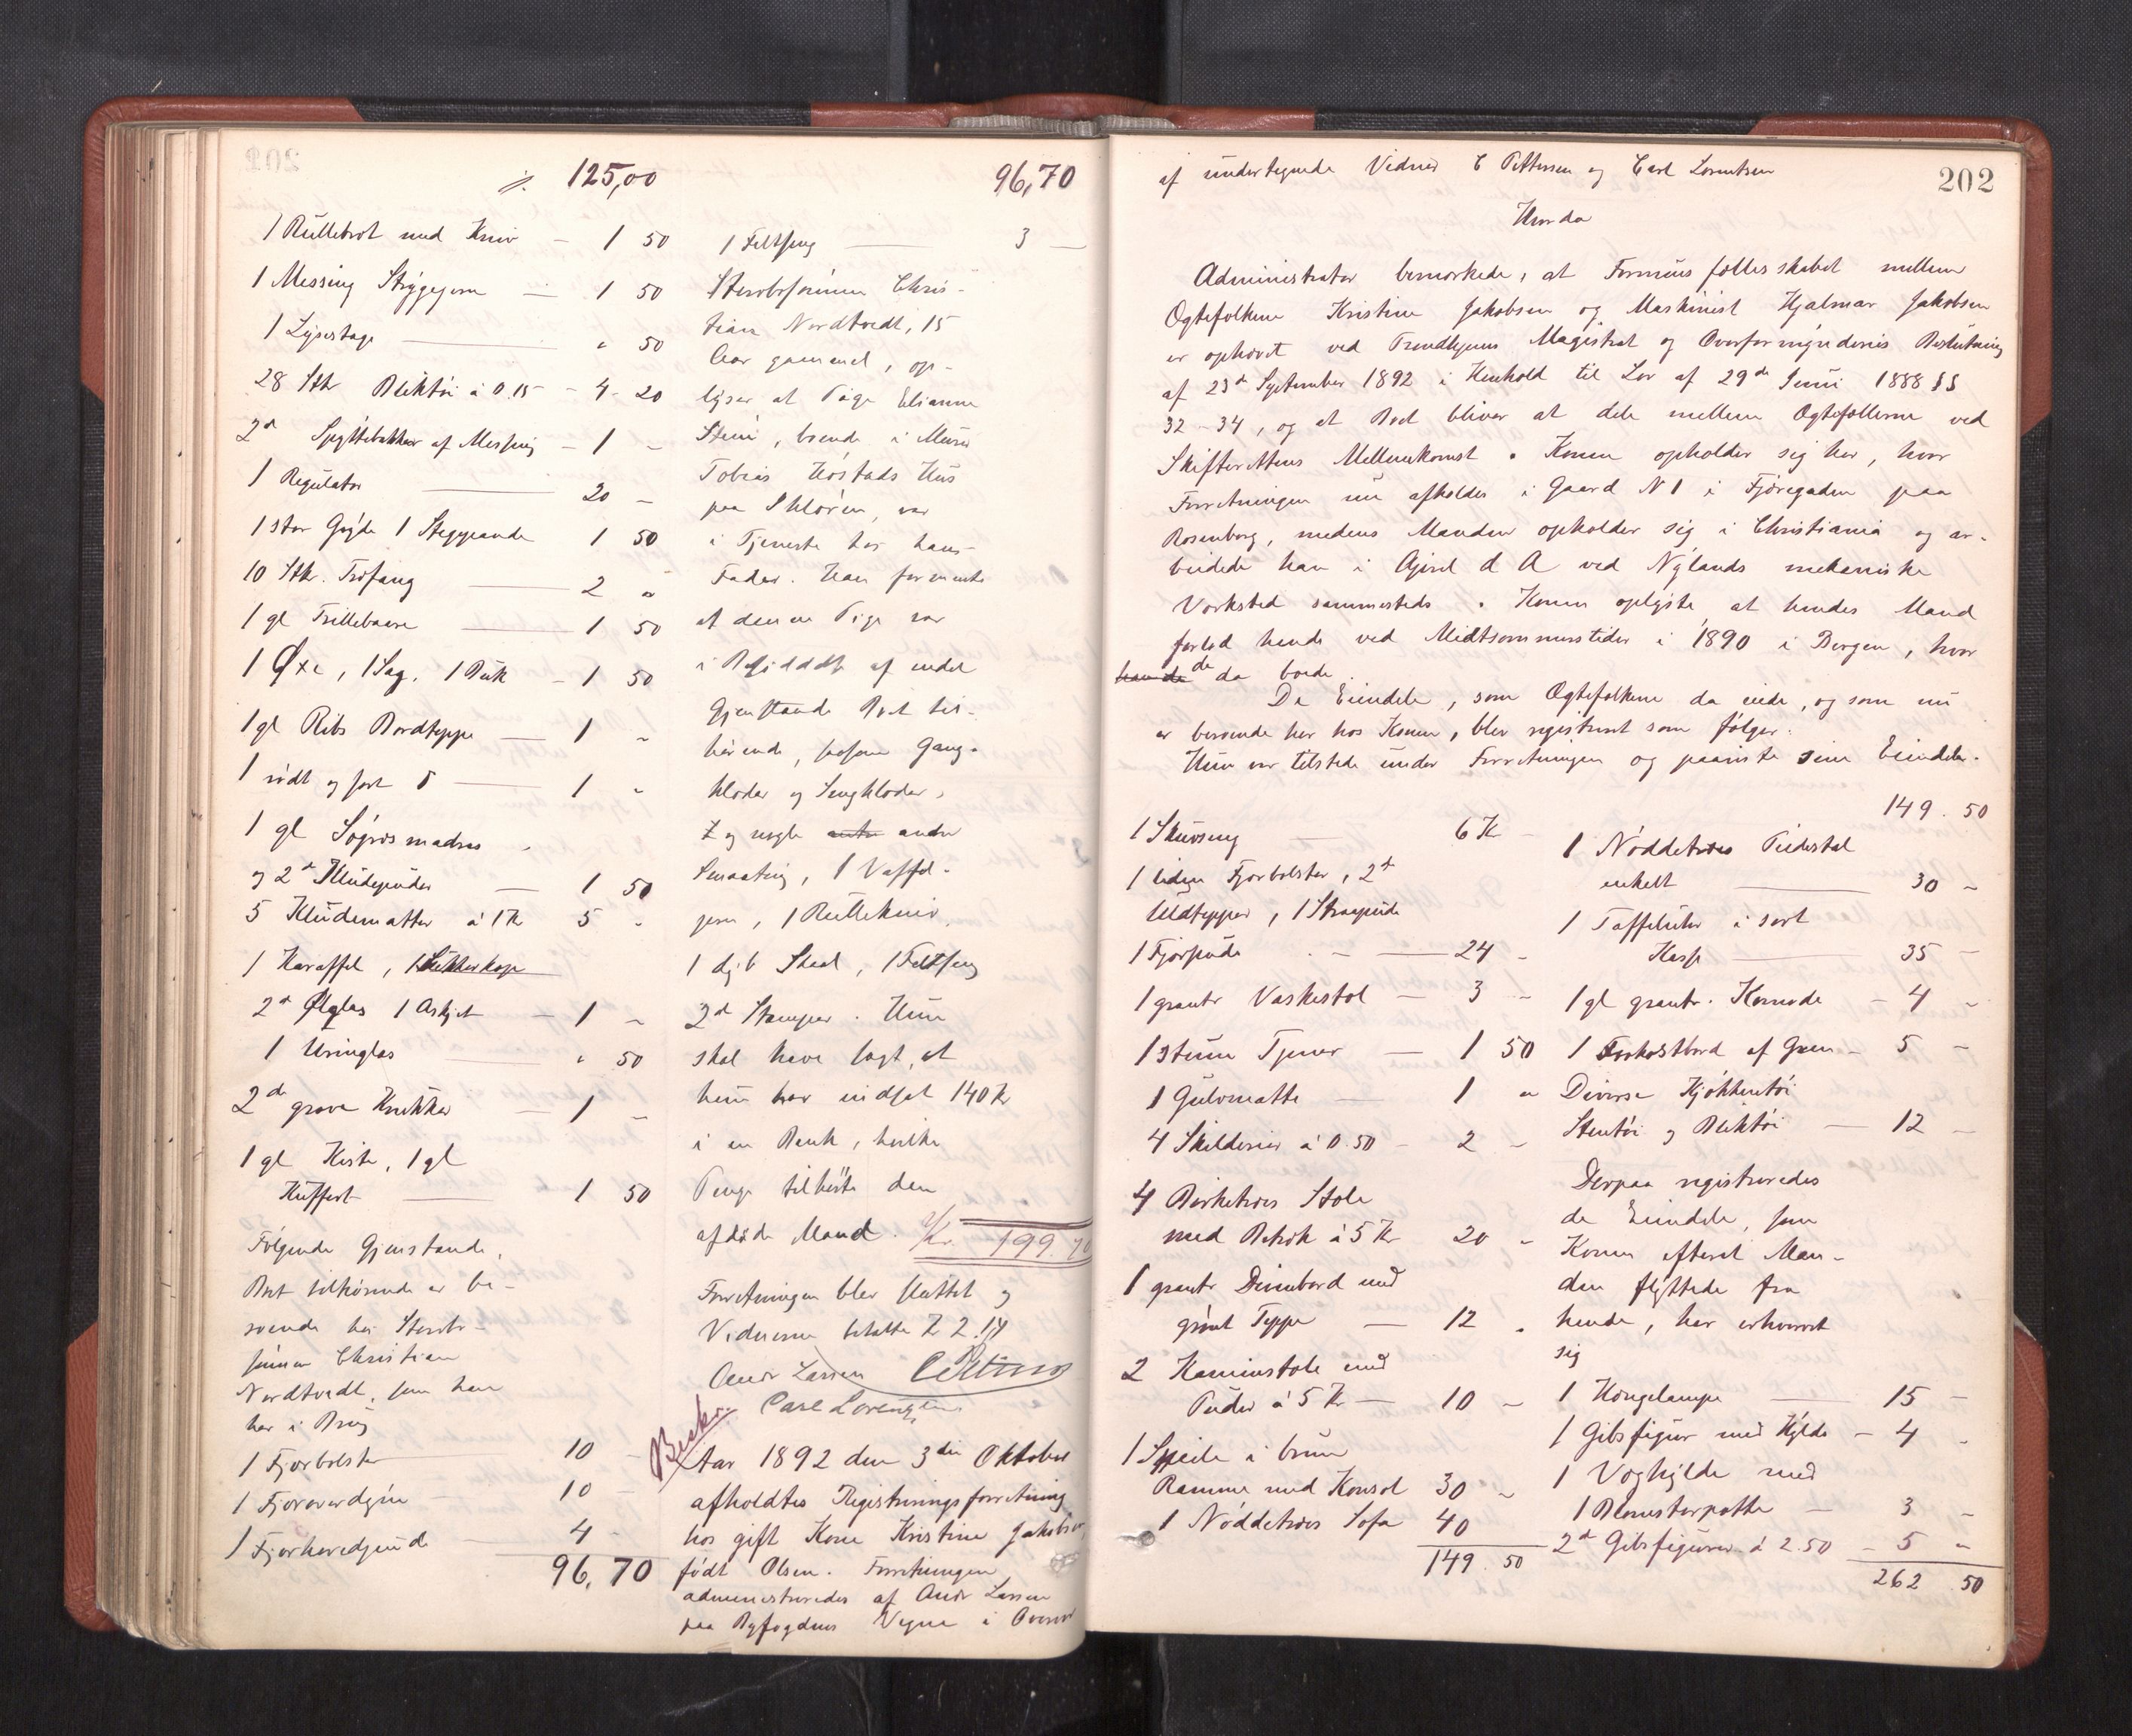 125,00 96,70
1 Rullebret med Kniv — 1 50
1 Messing Strygejern — 1 50
1 Lysestage — " 50
28 Stk Bliktøi à 0.15 - 4 - 20
2d Spyttebakker af Messing — 1 -
1 Regulator — 20 -
1 stor Gryde 1 Stegepande 1 50
10 Stk. Træfang — 2 "
1 gl Trillebaare — 1 50
1 Øxe, 1 Sag, 1 Buk - 1 50
1 gl Ribs Bordteppe — 1 -
1 rødt og sort d — 1 -
1 gl Søgræsmadras
og 2d Kludepuder — 1 50
5 Kludematter à 1 Kr 5 -
1 Karaffel, 1 Sukkerkop
2d Ølglas 1 Askjet — 1 -
1 Uringlas — " 50
2d grove Krukker — 1 -
1 gl Kiste, 1 gl
Kuffert — 1 50
Følgende Gjenstande,
Boet tilhørende er be-
roende hos Stervbo-
sønnen Christian
Nordtvedt, som han
har i Brug
1 Fjærbolster — 10 -
1 Fjæroverdyne — 10 -
1 Fjærhovedpude — 4 -
96,70
1 Feltseng — 3 —
Stervbosønnen Chris-
tian Nordtvedt, 15
Aar gammel, op-
lyser at Pige Elianne
Steni, boende i Murer
Tobias Høstads Hus
paa Skløren, var
i Tjeneste hos hans
Fader. Han formente
at denne Pige var
i Besiddelse af endel
Gjenstande Boet til-
hørende, saasom Gang-
klæder og Sengklæder,
og nogle andre
Smaating, 1 Vaffel-
jern, 1 Rullekniv,
1 djb Skaal, 1 Feltseng
2d Stamper. Hun
skal have sagt, at
hun har indsat 140 Kr
i en Bank, hvilke
Penge tilhørte den
afdøde Mand. Kr. 199.70
Forretningen blev sluttet og
Vidnerne betalte 2.14
Andr Larsen C Pettersen
Carl Lorentzen
Beskr.
Aar 1892 den 3die Oktober
afholdtes Registreringsforretning
hos gift Kone Kristine Jakobsen,
født Olsen. Forretningen
administreredes af Andr Larsen
paa Byfogdens Vegne i Overvær
202
af undertegnede Vidner C Pettersen og Carl Lorentsen
Hvorda
Administrator bemærkede, at Formuesfællesskabet mellem
Ægtefolkene Kristine Jakobsen og Maskinist Hjalmar Jakobsen
er ophævet ved Trondhjems Magistrat og Overformynderies Beslutning
af 23d September 1892 i Henhold til Lov af 29de Juni 1888 §§
32-34, og at Boet bliver at dele mellem Ægtefællerne ved
Skifterettens Mellemkomst. Konen opholder sig her, hvor
Forretningen nu afholdes i Gaard N 1 i Fjæregaden paa
Rosenborg, medens Manden opholder sig i Christiania og ar-
beidede han i April d A ved Nylands mekaniske
Værksted sammesteds. Konen oplyste, at hendes Mand
forlod hende ved Midtsommerstider i 1890 i Bergen, hvor
de da boede.
De Eiendele, som Ægtefolkene da eiede, og som nu
er beroende her hos Konen, blev registreret som følger:
Hun var tilstede under Forretningen og paaviste sine Eiendele.
1 Skuvseng — 6 Kr -
1 liden Fjærbolster, 2d
Uldtepper, 1 Straapude
1 Fjærpude — 24 -
1 grantr Vaskestol — 3 -
1 stum Tjener — 1 50
1 Gulvmatte — 1 "
4 Skilderier à 0.50 - 2 -
4 Birketræes Stole
med Betræk à 5 Kr 20 -
1 grantr Divanbord med
grønt Teppe — 12 "
2 Kaminstole med
Puder à 5 Kr — 10 -
1 Speile i brun
Ramme med Konsol 30 -
1 Nøddetræes Sofa 40
149.50
149.50
1 Nøddetræes Piedestal
enkelt — 30 -
1 Taffeluhr i sort
Kasse — 35 -
1 gl grantr. Komode - 4 -
1 Frokostbord af Gran - 5 -
Diverse Kjøkkentøi
Stentøi og Bliktøi — 12 -
Derpaa registreredes
de Eiendele, som
Konen efterat Man-
den flyttede fra
hende, har erhvervet
sig
1 Hængelampe — 15 -
1 Gibsfigur med Hylde - 4 -
1 Væghylde med
1 Blomsterpotte — 3 -
2d Gibsfigurer à 2.50 - 5 "
262 50